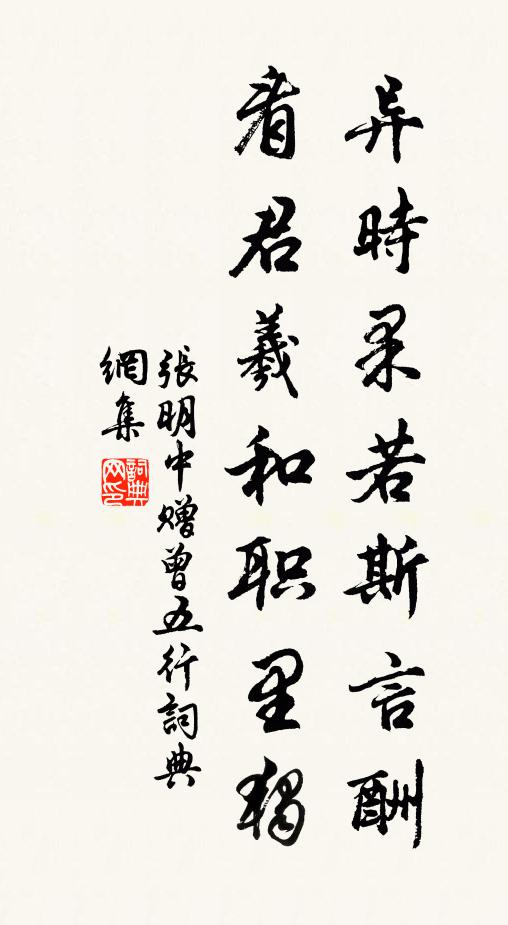 异時果若斯言酬
看君羲和职里
張明中贈曾五行詞典
網集
詞典网印